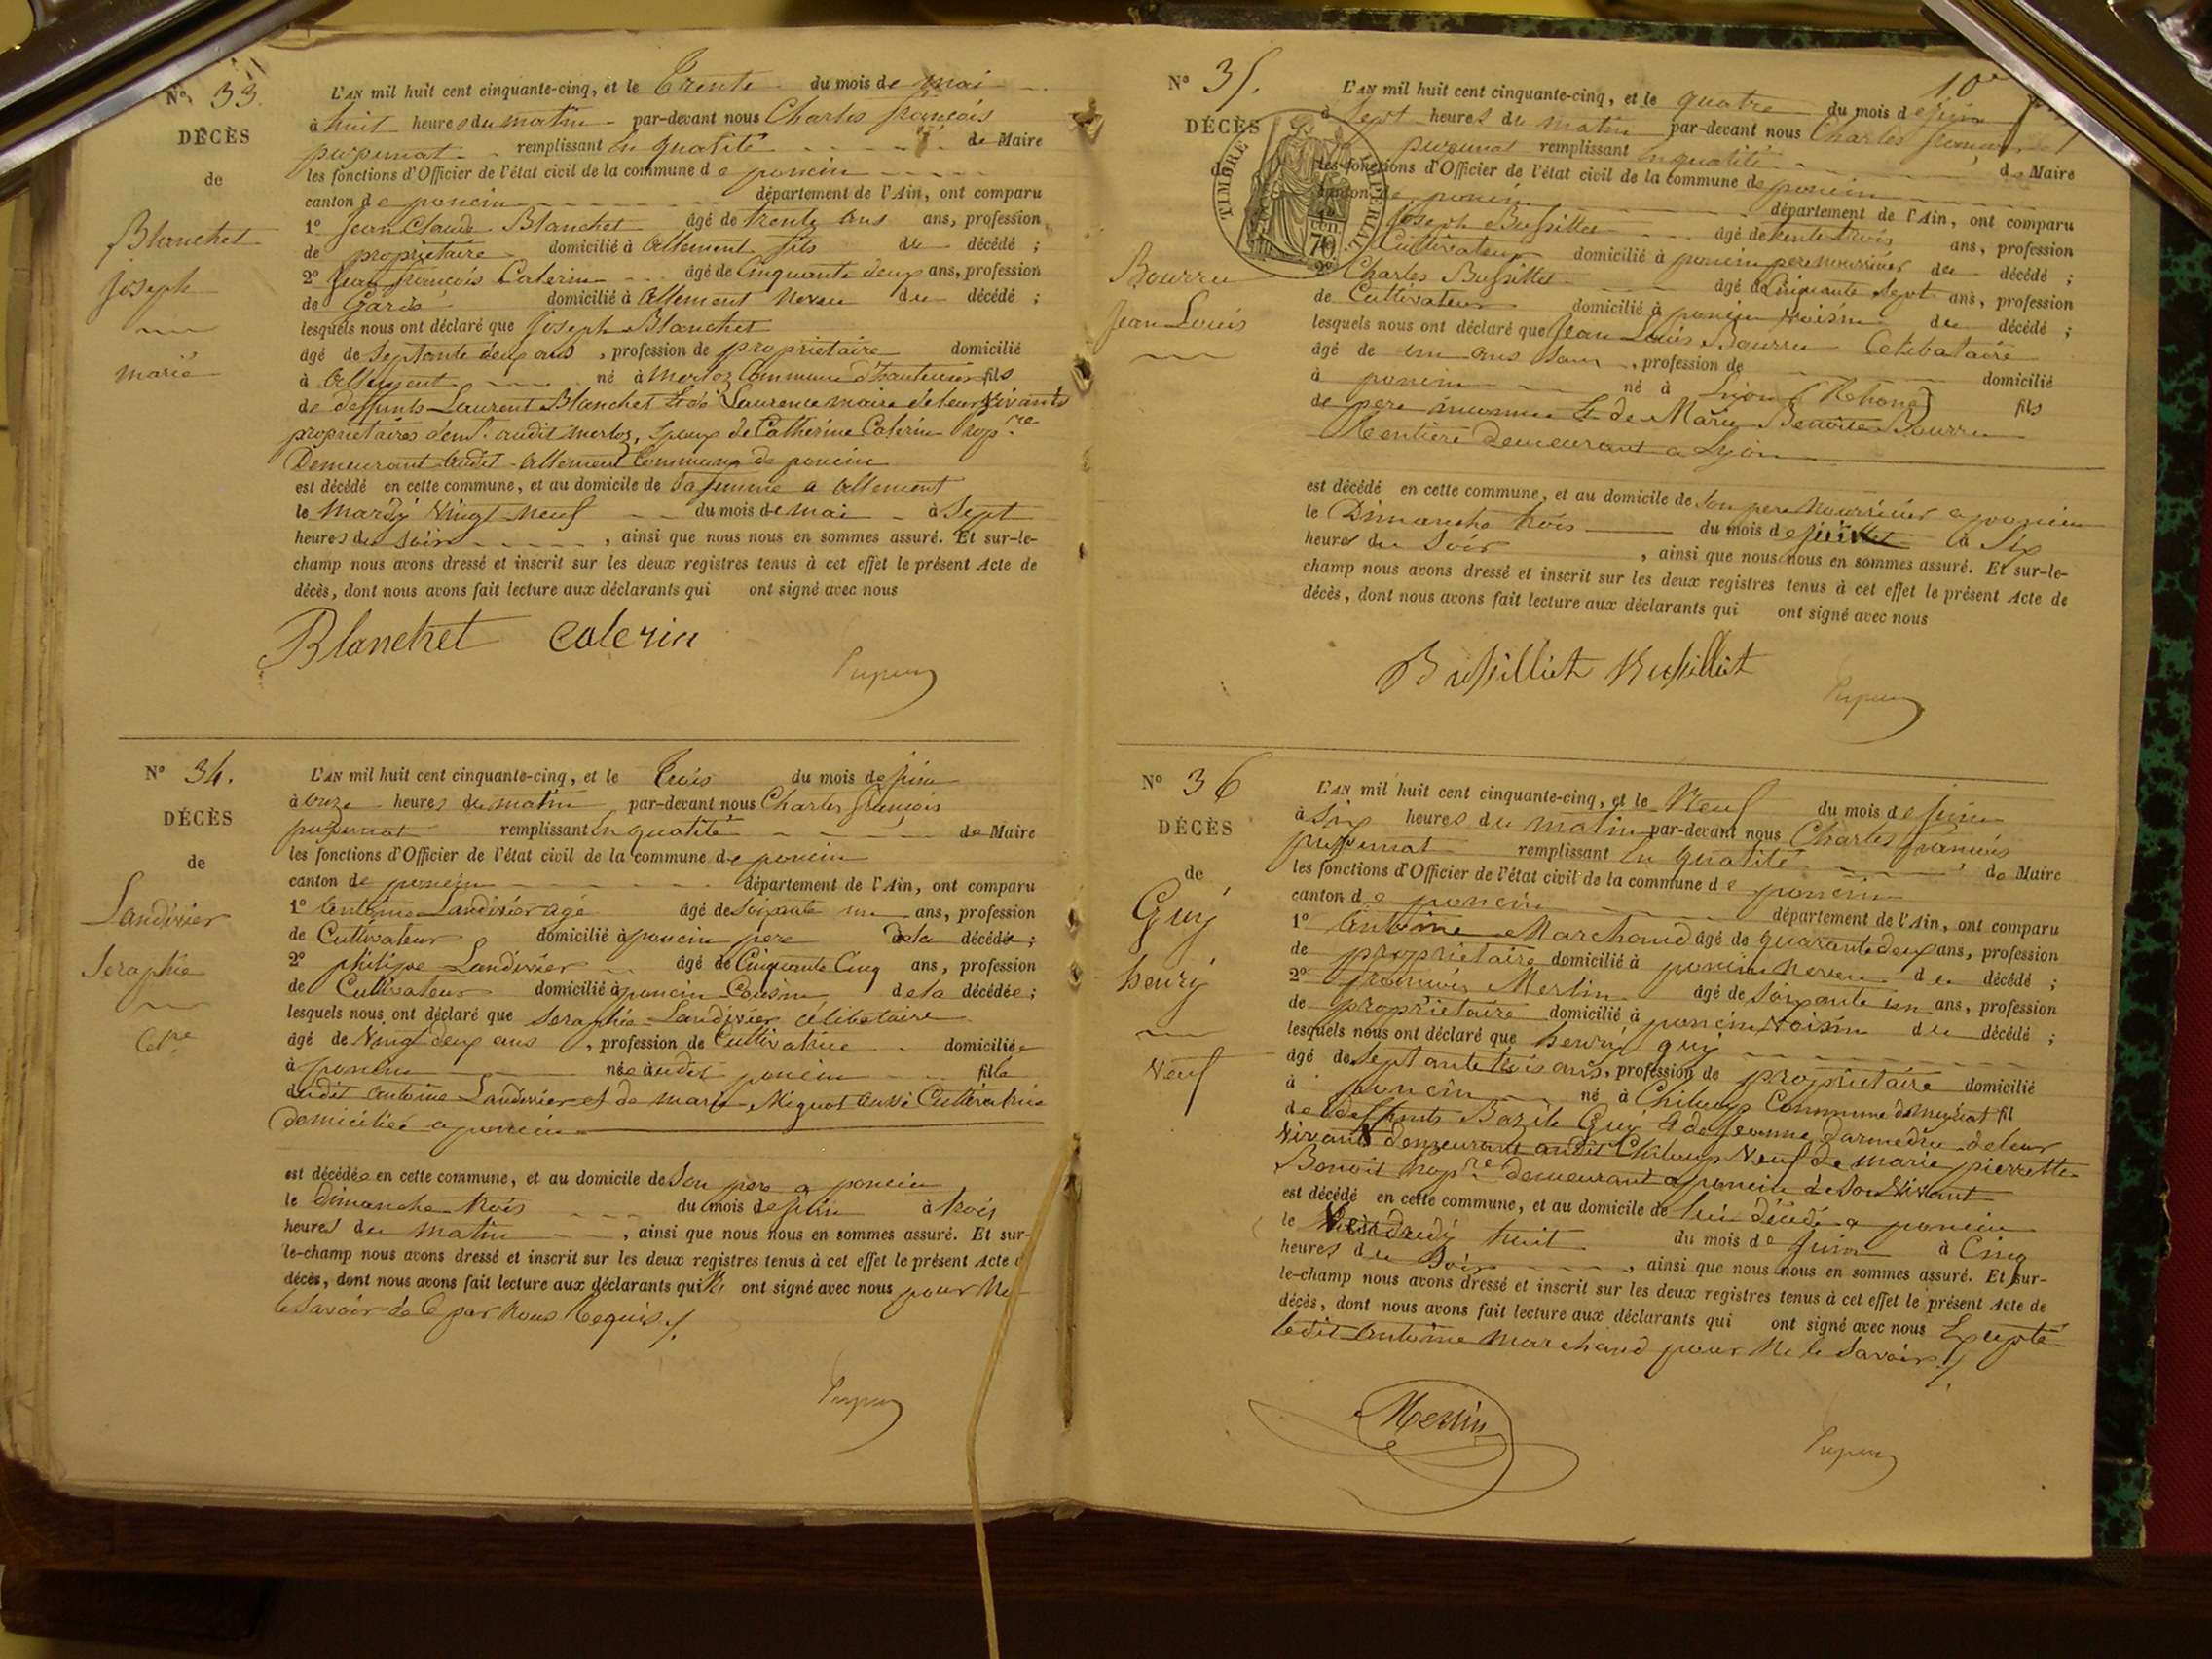 N° 33.
DÉCÈS
de
Blanchet
joseph
marié
L'AN mil huit cent cinquante-cinq, et le Trente du mois de mai
à huit heures du matin par-devant nous Charles françois
pupunat remplissant En qualité de Maire
les fonctions d'Officier de l'état civil de la commune de poncin
canton de poncin département de l'Ain, ont comparu
1° Jean Claude Blanchet âgé de trente ans ans, profession
de propriétaire domicilié à Allement fils du décédé ;
2° Jean françois Caterin âgé de Cinquante deux ans, profession
de Garde domicilié à Allement neveu du décédé ;
lesquels nous ont déclaré que joseph Blanchet
âgé de Septante deux ans , profession de propriétaire domicilié
à Allement né à Merloz Commune d'hauteville fils
de deffunts Laurent Blanchet et de Laurence maire de leur vivants
propriétaires dem.t audit Merloz, Epoux de Catherine Caterin
Demeurant audit Allement Commune de poncin
est décédé en cette commune, et au domicile de Sa femme a Allement
le mardy Vingt neuf du mois de mai à Sept
heures du soir , ainsi que nous nous en sommes assuré. Et sur-le-
champ nous avons dressé et inscrit sur les deux registres tenus à cet effet le présent Acte de
décès, dont nous avons fait lecture aux déclarants qui ont signé avec nous
Blanchet Caterin
N° 34.
DÉCÈS
de
Landivier
Seraphie
L'AN mil huit cent cinquante-cinq, et le Trois du mois de juin
à onze heures du matin par-devant nous Charles françois
pupunat remplissant En qualité de Maire
les fonctions d'Officier de l'état civil de la commune de poncin
canton de poncin département de l'Ain, ont comparu
1° Antoine Landivier agé âgé de Soixante un ans, profession
de Cultivateur domicilié à poncin pere de la décédée ;
2° philipe Landivier âgé de Cinquante Cinq ans, profession
de Cultivateur domicilié à poncin Cousin de la décédée ;
lesquels nous ont déclaré que Seraphie Landivier célibataire
âgé de Vingt deux ans , profession de Cultivatrice domiciliée
à poncin née audit poncin fille
dudit antoine Landivier et de marie Mignot aussi Cultivatrice
Domiciliée a poncin
est décédée en cette commune, et au domicile de Son pere a poncin
le dimanche trois du mois de juin à trois
heures du matin , ainsi que nous nous en sommes assuré. Et sur-
le-champ nous avons dressé et inscrit sur les deux registres tenus à cet effet le présent Acte de
décès, dont nous avons fait lecture aux déclarants qui n'ont signé avec nous pour ne
le Savoir de Ce par nous Requis
N° 35.
10e
DÉCÈS
TIMBRE IMPÉRIAL
70
Bourru
Jean Louis
L'AN mil huit cent cinquante-cinq, et le quatre du mois de juin
à Sept heures du matin par-devant nous Charles françois
pupunat remplissant En qualité de Maire
les fonctions d'Officier de l'état civil de la commune de poncin
canton de poncin département de l'Ain, ont comparu
joseph Bussillet âgé de trente trois ans, profession
Cultivateur domicilié à poncin pere nourricier du décédé ;
2° Charles Bussillet âgé de Cinquante Sept ans, profession
de Cultivateur domicilié à poncin voisin du décédé ;
lesquels nous ont déclaré que Jean Louis Bourru Célibataire
âgé de un ans , profession de domicilié
à poncin né à Lion (Rhone) fils
de pere inconnu Et de Marie Benoite Bourru
Rentière Demeurant a Lyon
est décédé en cette commune, et au domicile de Son pere nourricier a poncin
le Dimanche trois du mois de à Six
heures du Soir , ainsi que nous nous en sommes assuré. Et sur-le-
champ nous avons dressé et inscrit sur les deux registres tenus à cet effet le présent Acte de
décès, dont nous avons fait lecture aux déclarants qui ont signé avec nous
Bussilliet Bussilliet
N° 36
DÉCÈS
de
Guy
henry
Veuf
L'AN mil huit cent cinquante-cinq, et le Neuf du mois de juin
à Six heures du matin par-devant nous Charles françois
pupunat remplissant En qualité de Maire
les fonctions d'Officier de l'état civil de la commune de poncin
canton de poncin département de l'Ain, ont comparu
1° Antoine Marchand âgé de quarante deux ans, profession
de propriétaire domicilié à poncin neveu du décédé ;
2° françois Merlin âgé de Soixante un ans, profession
de propriétaire domicilié à poncin voisin du décédé ;
lesquels nous ont déclaré que henry guy
âgé de Septante trois ans, profession de propriétaire domicilié
à poncin né à Chiloup Commune de fil
de deffunts Bazile Guy Et de Jeanne darmedru de leur
vivants demeurant audit Chiloup Veuf de marie pierrette
Benoit demeurant a poncin de Son Vivant
est décédé en cette commune, et au domicile de lui décédé a poncin
le Vendredy huit du mois de juin à Cinq
heures du Soir , ainsi que nous nous en sommes assuré. Et sur-
le-champ nous avons dressé et inscrit sur les deux registres tenus à cet effet le présent Acte de
décès, dont nous avons fait lecture aux déclarants qui ont signé avec nous Excepté
ledit Antoine Marchand pour Ne le Savoir
Merlin